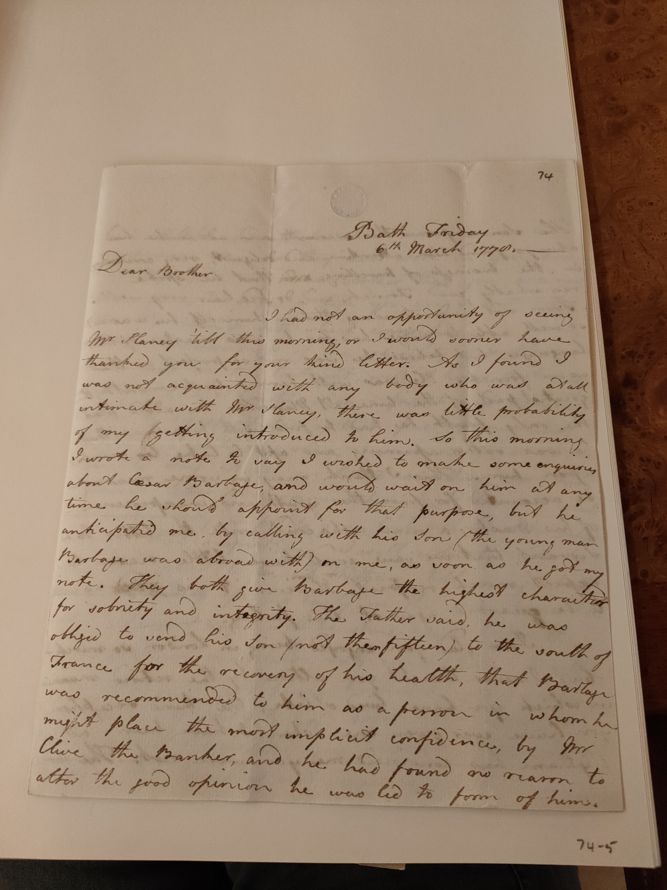 74
Bath Friday
6th March 1778. —
Dear Brother
I had not an opportunity of seeing
Mr Slaney 'till this morning, or I would sooner have
thanked you for your kind letter. As I found I
was not acquainted with any body who was at all
intimate with Mr Slaney, there was little probability
of my getting introduced to him. So this morning
I wrote a note to say I wished to make some enquiries
about Cæsar Barbage, and would wait on him at any
time he should appoint for that purpose, but he
anticipated me, by calling with his son (the young man
Barbage was abroad with) on me, as soon as he got my
note. They both give Barbage the highest character
for sobriety and integrity. The Father said, he was
obliged to send his son (not then fifteen) to the south of
France for the recovery of his health, that Barbage
was recommended to him as a person in whom he
might place the most implicit confidence, by Mr
Clive the Banker, and he had found no reason to
alter the good opinion he was led to form of him.
74-5